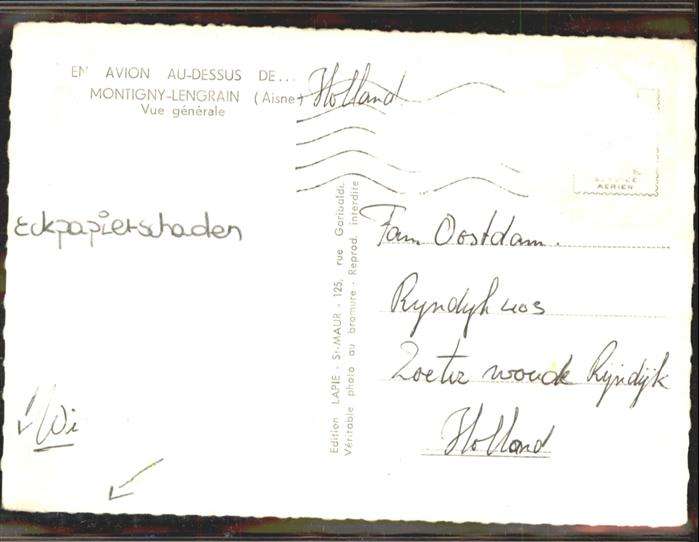 EN AVION AU-DESSUS DE... Holland
MONTIGNY-LENGRAIN (Aisne)
Vue générale
AERIEN
Eckpapierschaden
Edition LAPIE - St-MAUR - 125, rue Garibaldi.
Véritable photo au bromure - Reprod. interdite
Fam Oostdam.
Ryndyk
Zoeterwoude Rijndijk
Holland
Wi